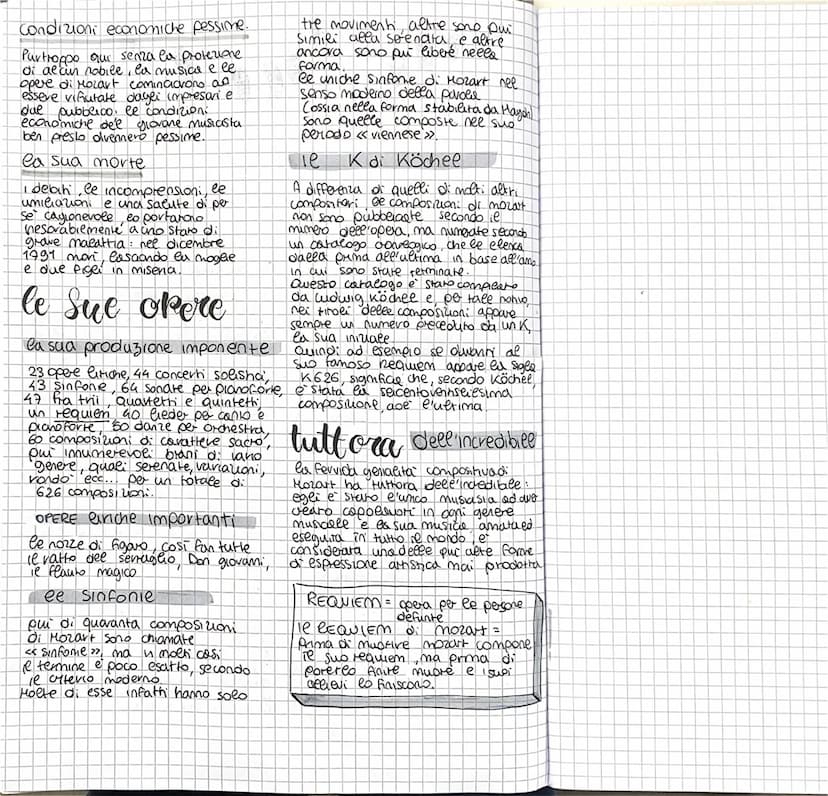 condizioni economiche pessime.
Purtroppo qui senza la protezione
di alcun nobile, la musica e le
opere di Mozart cominciarono ad
essere rifiutate dagli impresari e
dal pubblico. le condizioni
economiche del giovane musicista
ben presto divennero pessime.
la sua morte
i debiti, le incomprensioni, le
umiliazioni e una salute di per
sé cagionevole, lo portarono
inesorabilmente a uno stato di
grave malattia: nel dicembre
1791 morì, lasciando la moglie
e due figli in miseria.
le sue opere
la sua produzione imponente
23 opere liriche, 44 concerti solistici,
43 sinfonie, 64 sonate per pianoforte,
47 fra trii, quartetti e quintetti,
un requiem, 40 lieder per canto e
pianoforte, 50 danze per orchestra,
60 composizioni di carattere sacro,
più innumerevoli brani di vario
genere, quali serenate, variazioni,
rondò ecc... per un totale di
626 composizioni.
OPERE liriche importanti
le nozze di figaro, così fan tutte
il ratto del serraglio, Don giovanni,
il flauto magico
le sinfonie
più di quaranta composizioni
di Mozart sono chiamate
«sinfonie», ma in molti casi
il termine è poco esatto, secondo
il criterio moderno.
Molte di esse infatti hanno solo
tre movimenti, altre sono più
simili alla serenata, e altre
ancora sono più libere nella
forma.
le uniche sinfonie di Mozart nel
senso moderno della parola
(ossia nella forma stabilita da Haydn)
sono quelle composte nel suo
periodo «viennese».
il K di Köchel
A differenza di quelli di molti altri
compositori, le composizioni di mozart
non sono pubblicate secondo il
numero dell'opera, ma numerate secondo
un catalogo cronologico, che le elenca
dalla prima all'ultima in base all'anno
in cui sono state terminate.
Questo catalogo è stato compilato
da Ludwig Köchel e, per tale motivo,
nei titoli delle composizioni appare
sempre un numero preceduto da un K,
la sua iniziale.
Quindi ad esempio se davanti al
suo famoso Requiem appare la sigla
K626, significa che, secondo Köchel,
è stata la seicentoventiseiesima
composizione, cioè l'ultima.
tuttora dell'incredibile
la fervida genialità compositiva di
Mozart ha tuttora dell'incredibile:
egli è stato l'unico musicista ad aver
creato capolavori in ogni genere
musicale e la sua musica, amata ed
eseguita in tutto il mondo, è
considerata una delle più alte forme
di espressione artistica mai prodotta
REQUIEM = opera per le persone
defunte
il REQUIEM di mozart =
Prima di morire mozart compone
il suo requiem, ma prima di
poterlo finire muore e i suoi
allievi lo finiscono.